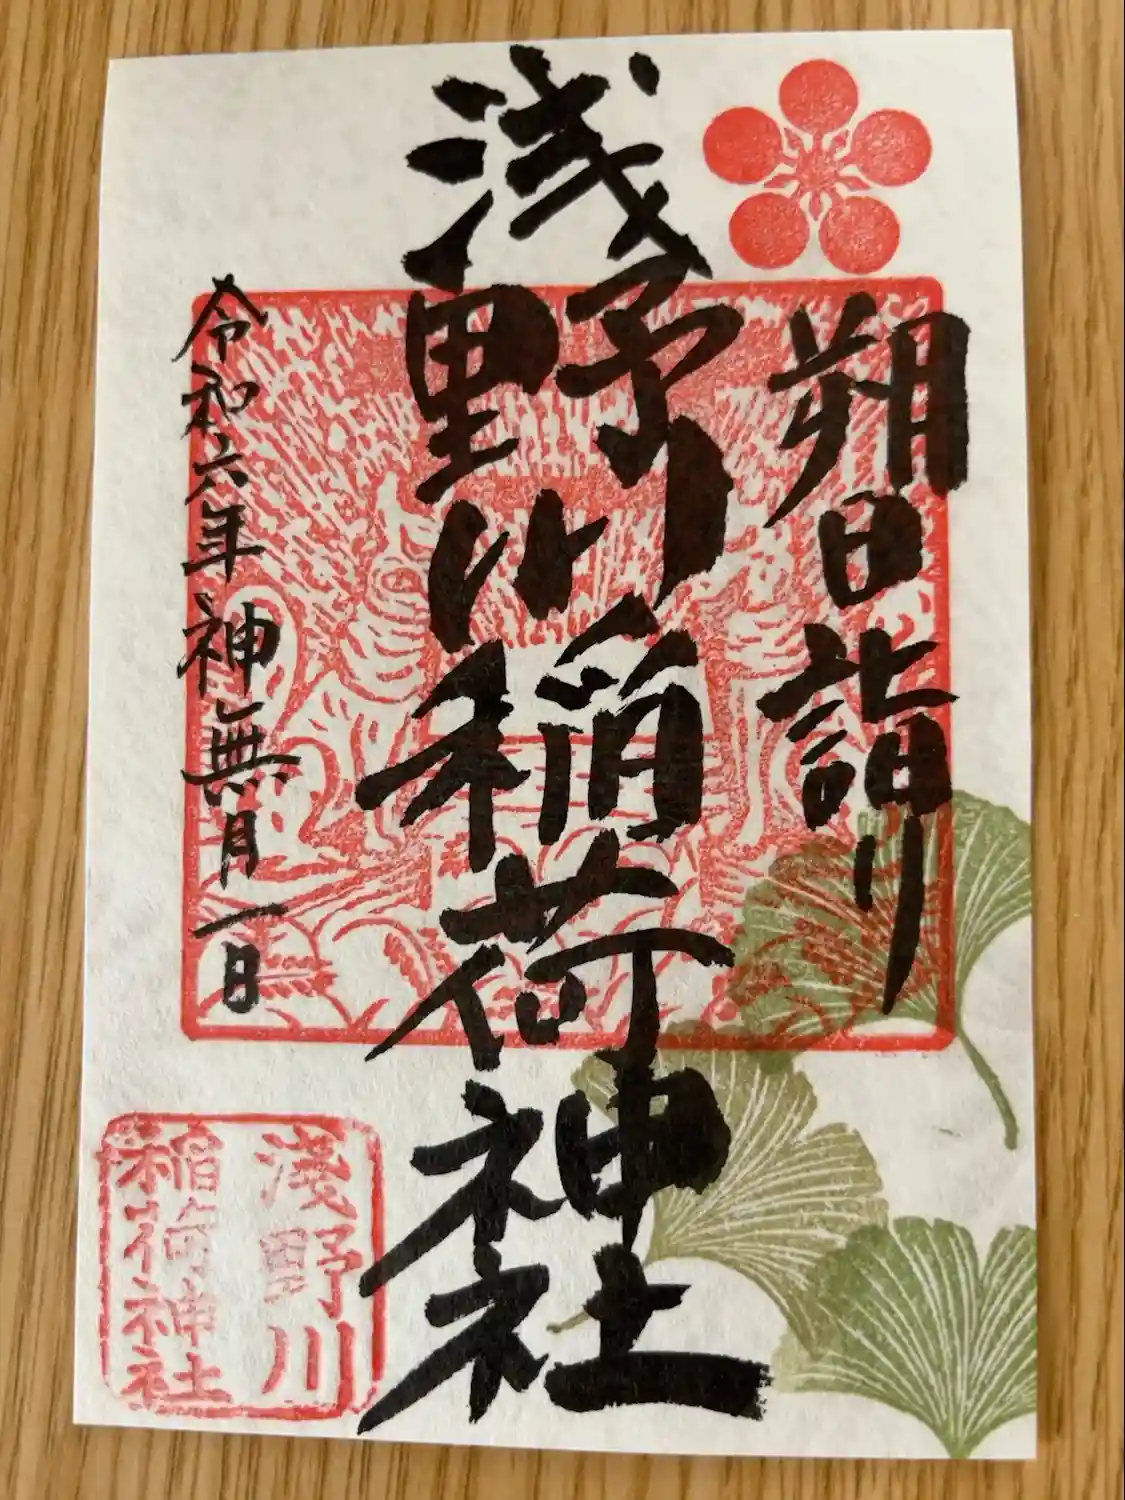 朔日詣り
浅野川稲荷神社
令和六年神無月一日
浅野川
稲荷神社